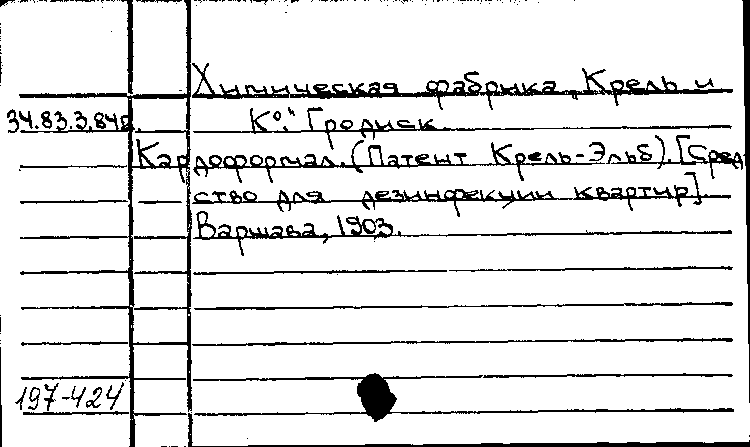 Химическая фабрика „Крель и
34.83.3.84г. Ко." Гродиск.
Кардоформал. (Патент Крель-Эльб). [Сред
ство для дезинфекции квартир].
Варшава, 1903.
197-424